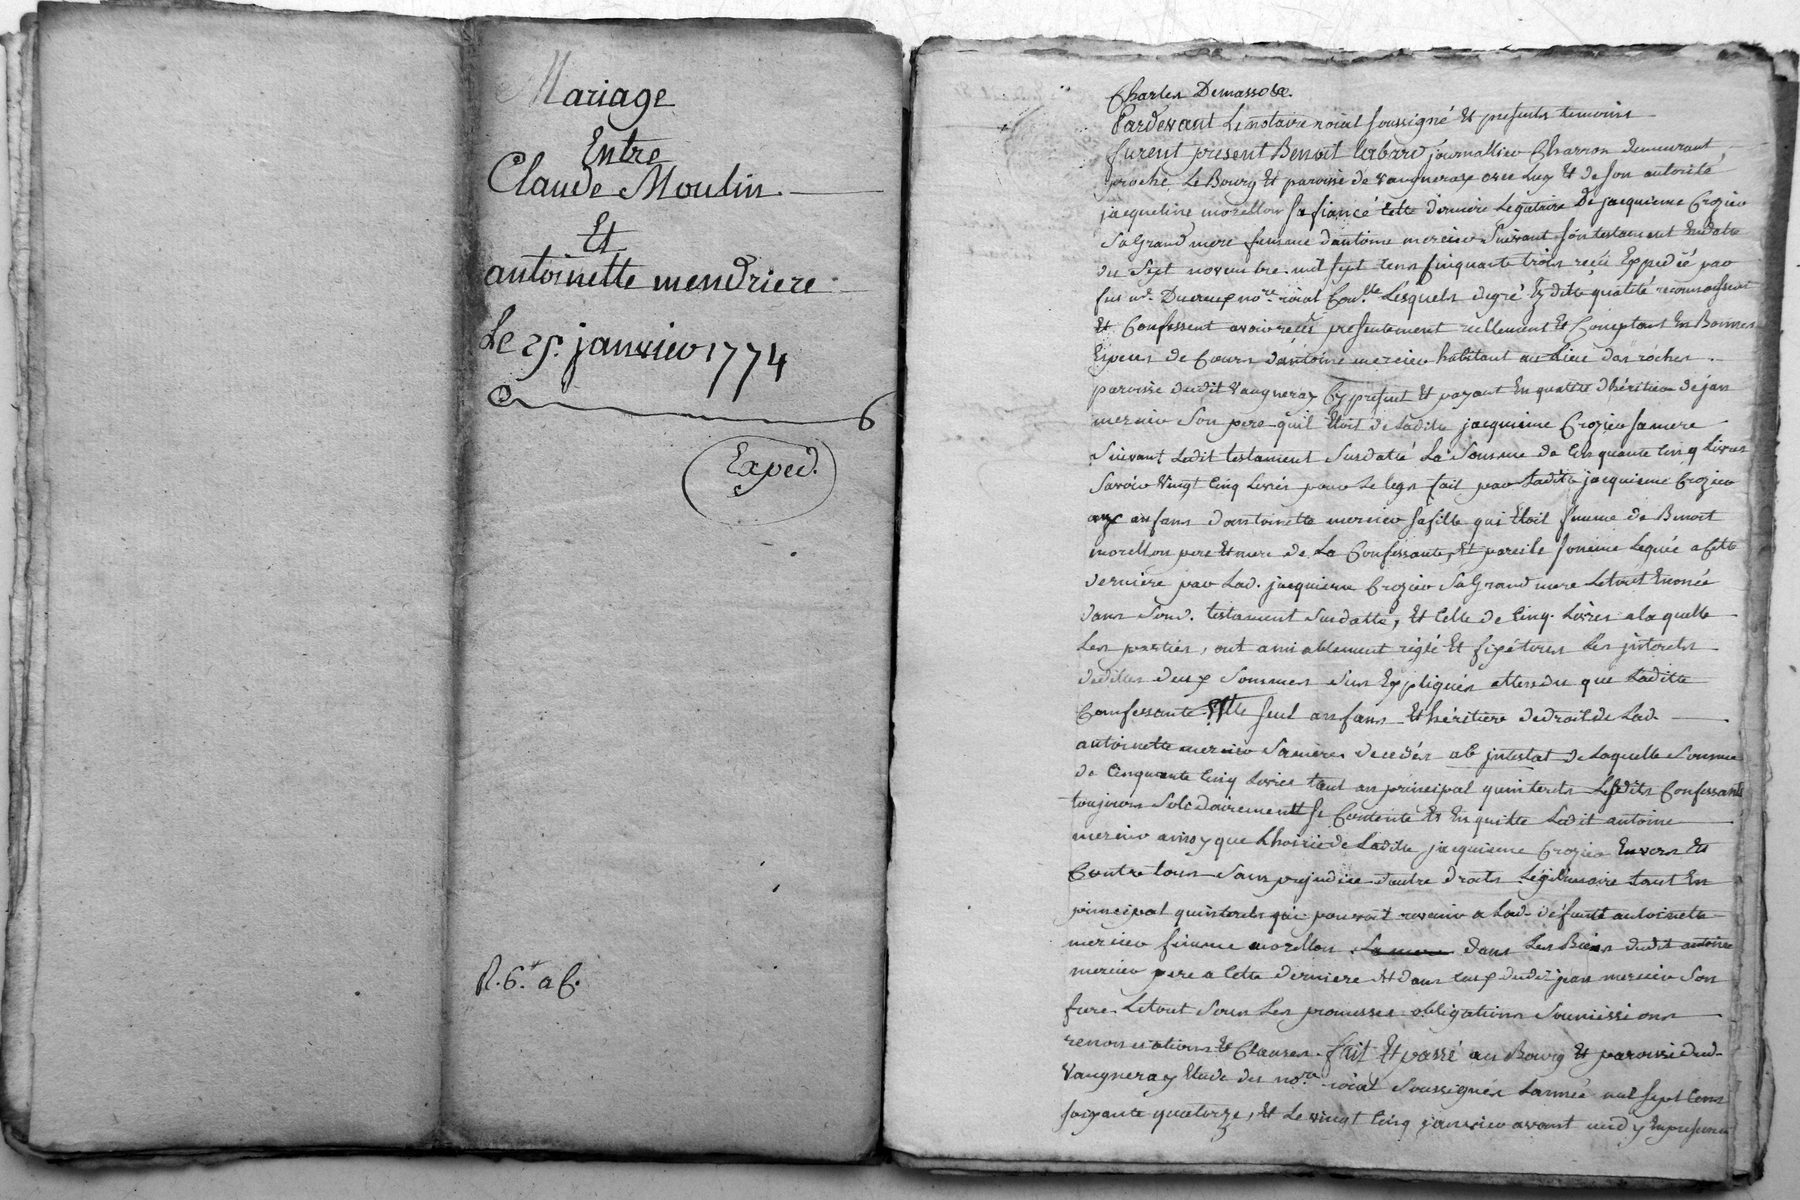 Mariage
Entre
Claude Moulin
Et
antoinette mendriere
Le 25. janvier 1774
Exped.
R. 6. a 6.
Charles Demassoée.
Pardevant Le notaire roial soussigné Et presents temoins
furent present Benoit journallier Charron demeurant
proche Le Bourg Et paroisse de vaugneray avec Luy Et de son autorité
jacqueline morellon sa fiancé cette derniere Legataire De jacquieme Crozier
Sa Grand mere femme dantoine mercier Suivant son testament En datte
du Sept novembre mil sept cens cinquante trois recu Expedié par
feu me. Ducreux nore. roial Lesquels degré Esdittes qualité reconnoissent
Et Confessent avoir recus presentement reellement Et Comptant En Bonnes
Especes de Cours dantoine mercier habitant au Lieu des roches
paroisse dudit vaugneray Cy present Et payant En qualité dhéritier de jean
mercier Son pere quil Etoit de Laditte jacquieme Crozier sa mere
Suivant Ledit testament Susdatté La Somme de Cinquante Cinq Livres
Savoir Vingt Cinq Livres pour Le legs fait par Laditte jacquieme Crozier
aux anfans dantoinette mercier sa fille qui Etoit femme de Benoit
morellon pere Et mere de La Confessante, Et pareille somme Leguée a cette
derniere par Lad. jacquieme Crozier Sa Grand mere Le tout Enoncé
dans Sond. testament Susdatté, Et Celle de Cinq Livres a laquelle
Les parties, ont amiablement reglé Et fixé tous Les jnterets
desdittes deux Sommes Sus Expliqués attendu que Laditte
Confessante seul anfans Et héritiere de droit de Lad.
antoinette mercier Sa mere decedés ab jntestat de Laquelle Somme
de Cinquante Cinq Livres tant an principal quinterets Lesdits Confessants
toujours Solidairement se Contente Et En quitte Ledit antoine
mercier ainsy que Lhoirie de Laditte jacquieme Crozier Envers Et
Contre tous Sans prejudice dautre droits Légitimaire tant En
principal quinterets qui pouvait revenir a Lad. défunte antoinette
mercier femme morellon La mere dans Les Biens dudit antoine
mercier pere a Cette derniere Et dans ceux dudit jean mercier Son
frere Le tout Sous Les promesses obligations Soumissions
renonciations Et Clauses. fait Et passé au Bourg Et paroisse dud.
Vaugneray Etude du nore. roial Soussignés Lannée mil sept Cens
soixante quatorze, Et Le vingt Cinq janvier avant midy En presence